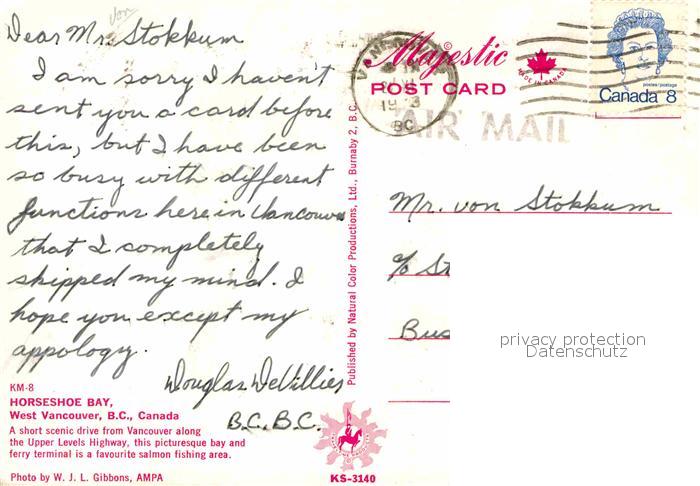 von
Dear Mr. Stokkum
I am sorry I haven't
sent you a card before
this, but I have been
so busy with different
functions here in Vancouver
that I completely
skipped my mind. I
hope you except my
appology.
Douglas DeVillies
B.C. B.C.
KM-8
HORSESHOE BAY,
West Vancouver, B.C., Canada
A short scenic drive from Vancouver along
the Upper Levels Highway, this picturesque bay and
ferry terminal is a favourite salmon fishing area.
Photo by W. J. L. Gibbons, AMPA
Published by Natural Color Productions, Ltd., Burnaby 2, B.C.
KS-3140
Majestic
POST CARD
MADE IN CANADA
VANCOUVER
BC
AIR MAIL
postes/postage
Canada 8
Mr. von Stokkum
c/o St
Bus
privacy protection
Datenschutz